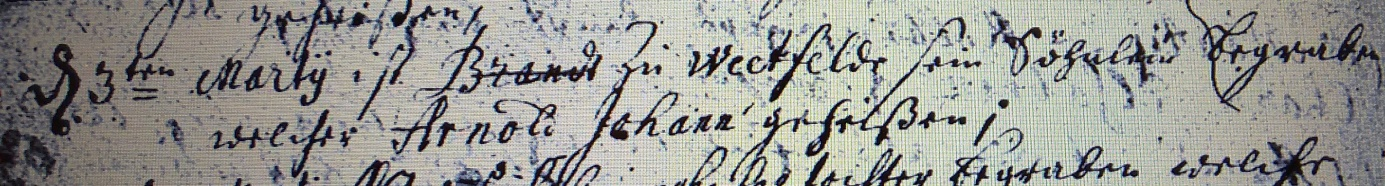 geheißen,
D 3ten Martij ist Brands zu Weetfelde sein Söhnlein begraben
welcher Arnold Johann geheißen;
tochter begraben welche